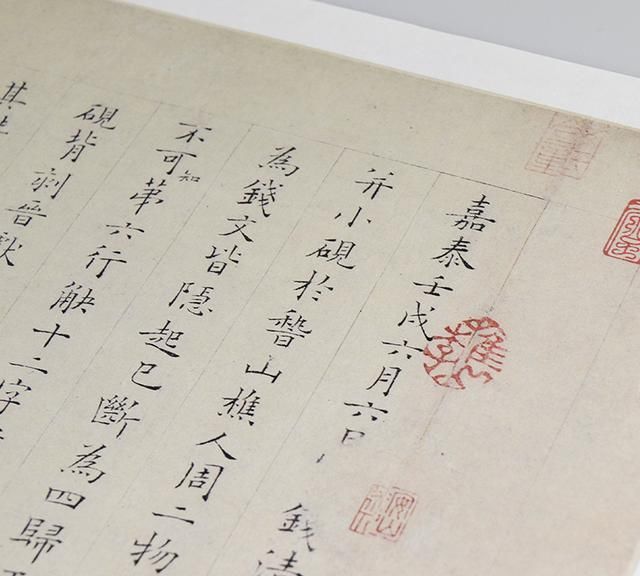 嘉泰壬戌六月六日錢清
并小硯於稽山樵人周二物
為錢文皆隱起已斷為四歸
不可知第六行缺十二字
硯背刻晉獻
其